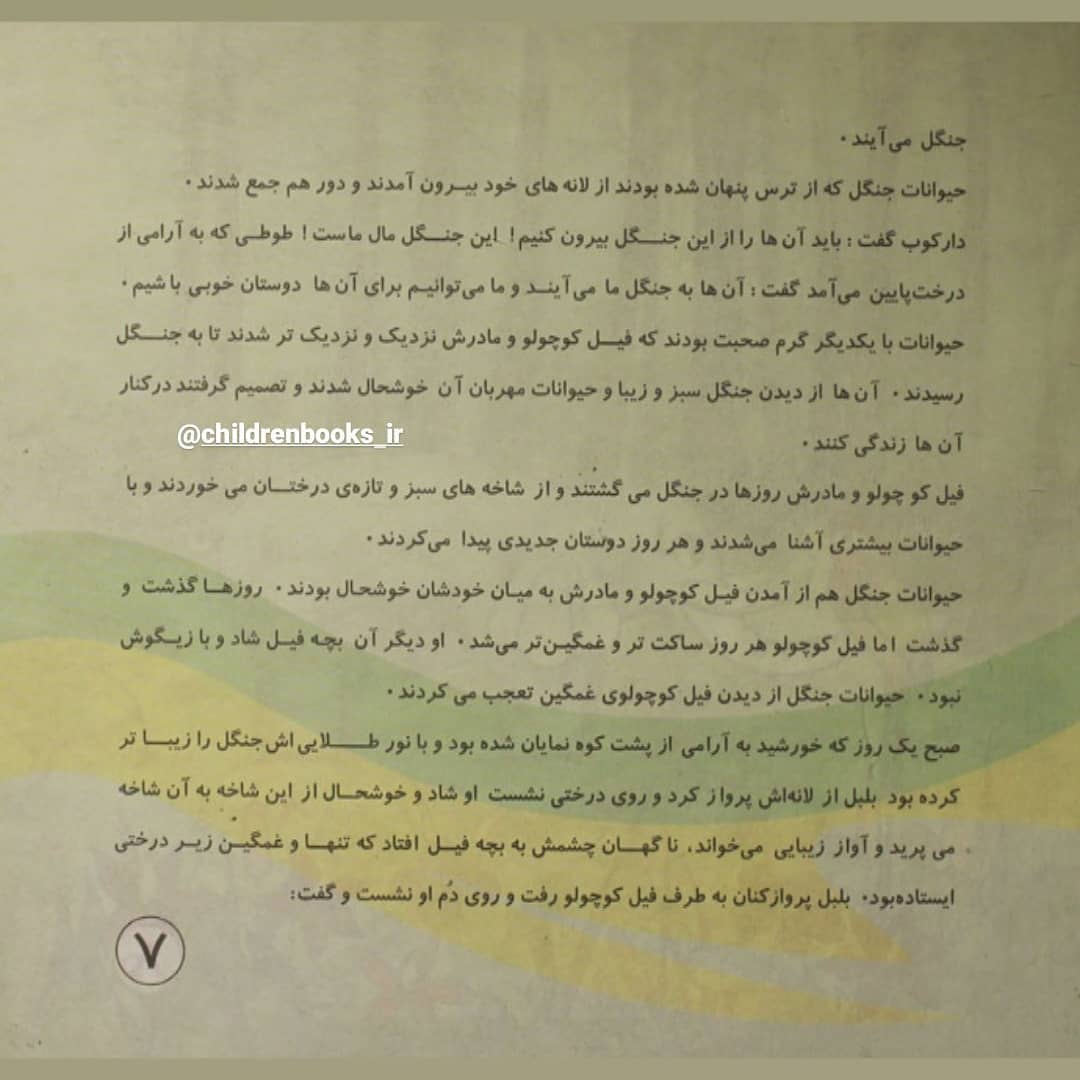 جنگل می‌آیند.
حیوانات جنگل که از ترس پنهان شده بودند از لانه های خود بیـرون آمدند و دور هم جمع شدند.
دارکوب گفت : باید آن ها را از این جنـــگل بیرون کنیم! این جنـــگل مال ماست! طوطـی که به آرامی از
درخت‌پایین می‌آمد گفت : آن ها به جنگل ما می‌آینـد و ما می‌توانیـم برای آن ها دوستان خوبی باشیم.
حیوانات با یکدیگر گرم صحبت بودند که فیــل کوچولو و مادرش نزدیک و نزدیک تر شدند تا به جنــگل
رسیدند. آن ها از دیدن جنگل سبز و زیبا و حیوانات مهربان آن خوشحال شدند و تصمیم گرفتند درکنار
آن ها زندگی کنند.
@childrenbooks_ir
فیل کو چولو و مادرش روزها در جنگل می گشتند و از شاخه های سبز و تازه‌ی درختــان می خوردند و با
حیوانات بیشتری آشنا می‌شدند و هر روز دوستان جدیدی پیدا می‌کردند.
حیوانات جنگل هم از آمدن فیـل کوچولو و مادرش به میـان خودشان خوشحـال بودند. روزهــا گذشت و
گذشت اما فیل کوچولو هر روز ساکت تر و غمگیـن‌تر می‌شد. او دیگر آن بچه فیـل شاد و با زیـگوش
نبود. حیوانات جنگل از دیدن فیل کوچولوی غمگین تعجب می کردند.
صبح یک روز که خورشید به آرامی از پشت کوه نمایان شده بود و با نور طـــلایی‌اش‌جنگل را زیبــا تر
کرده بود بلبل از لانه‌اش پرواز کرد و روی درختی نشست او شاد و خوشحـال از این شاخه به آن شاخه
می پرید و آواز زیبایی می‌خواند، نا گهــان چشمش به بچه فیـل افتاد که تنهـا و غمگیـن زیـر درختی
ایستاده‌بود. بلبل پروازکنان به طرف فیل کوچولو رفت و روی دُم او نشست و گفت:
۷